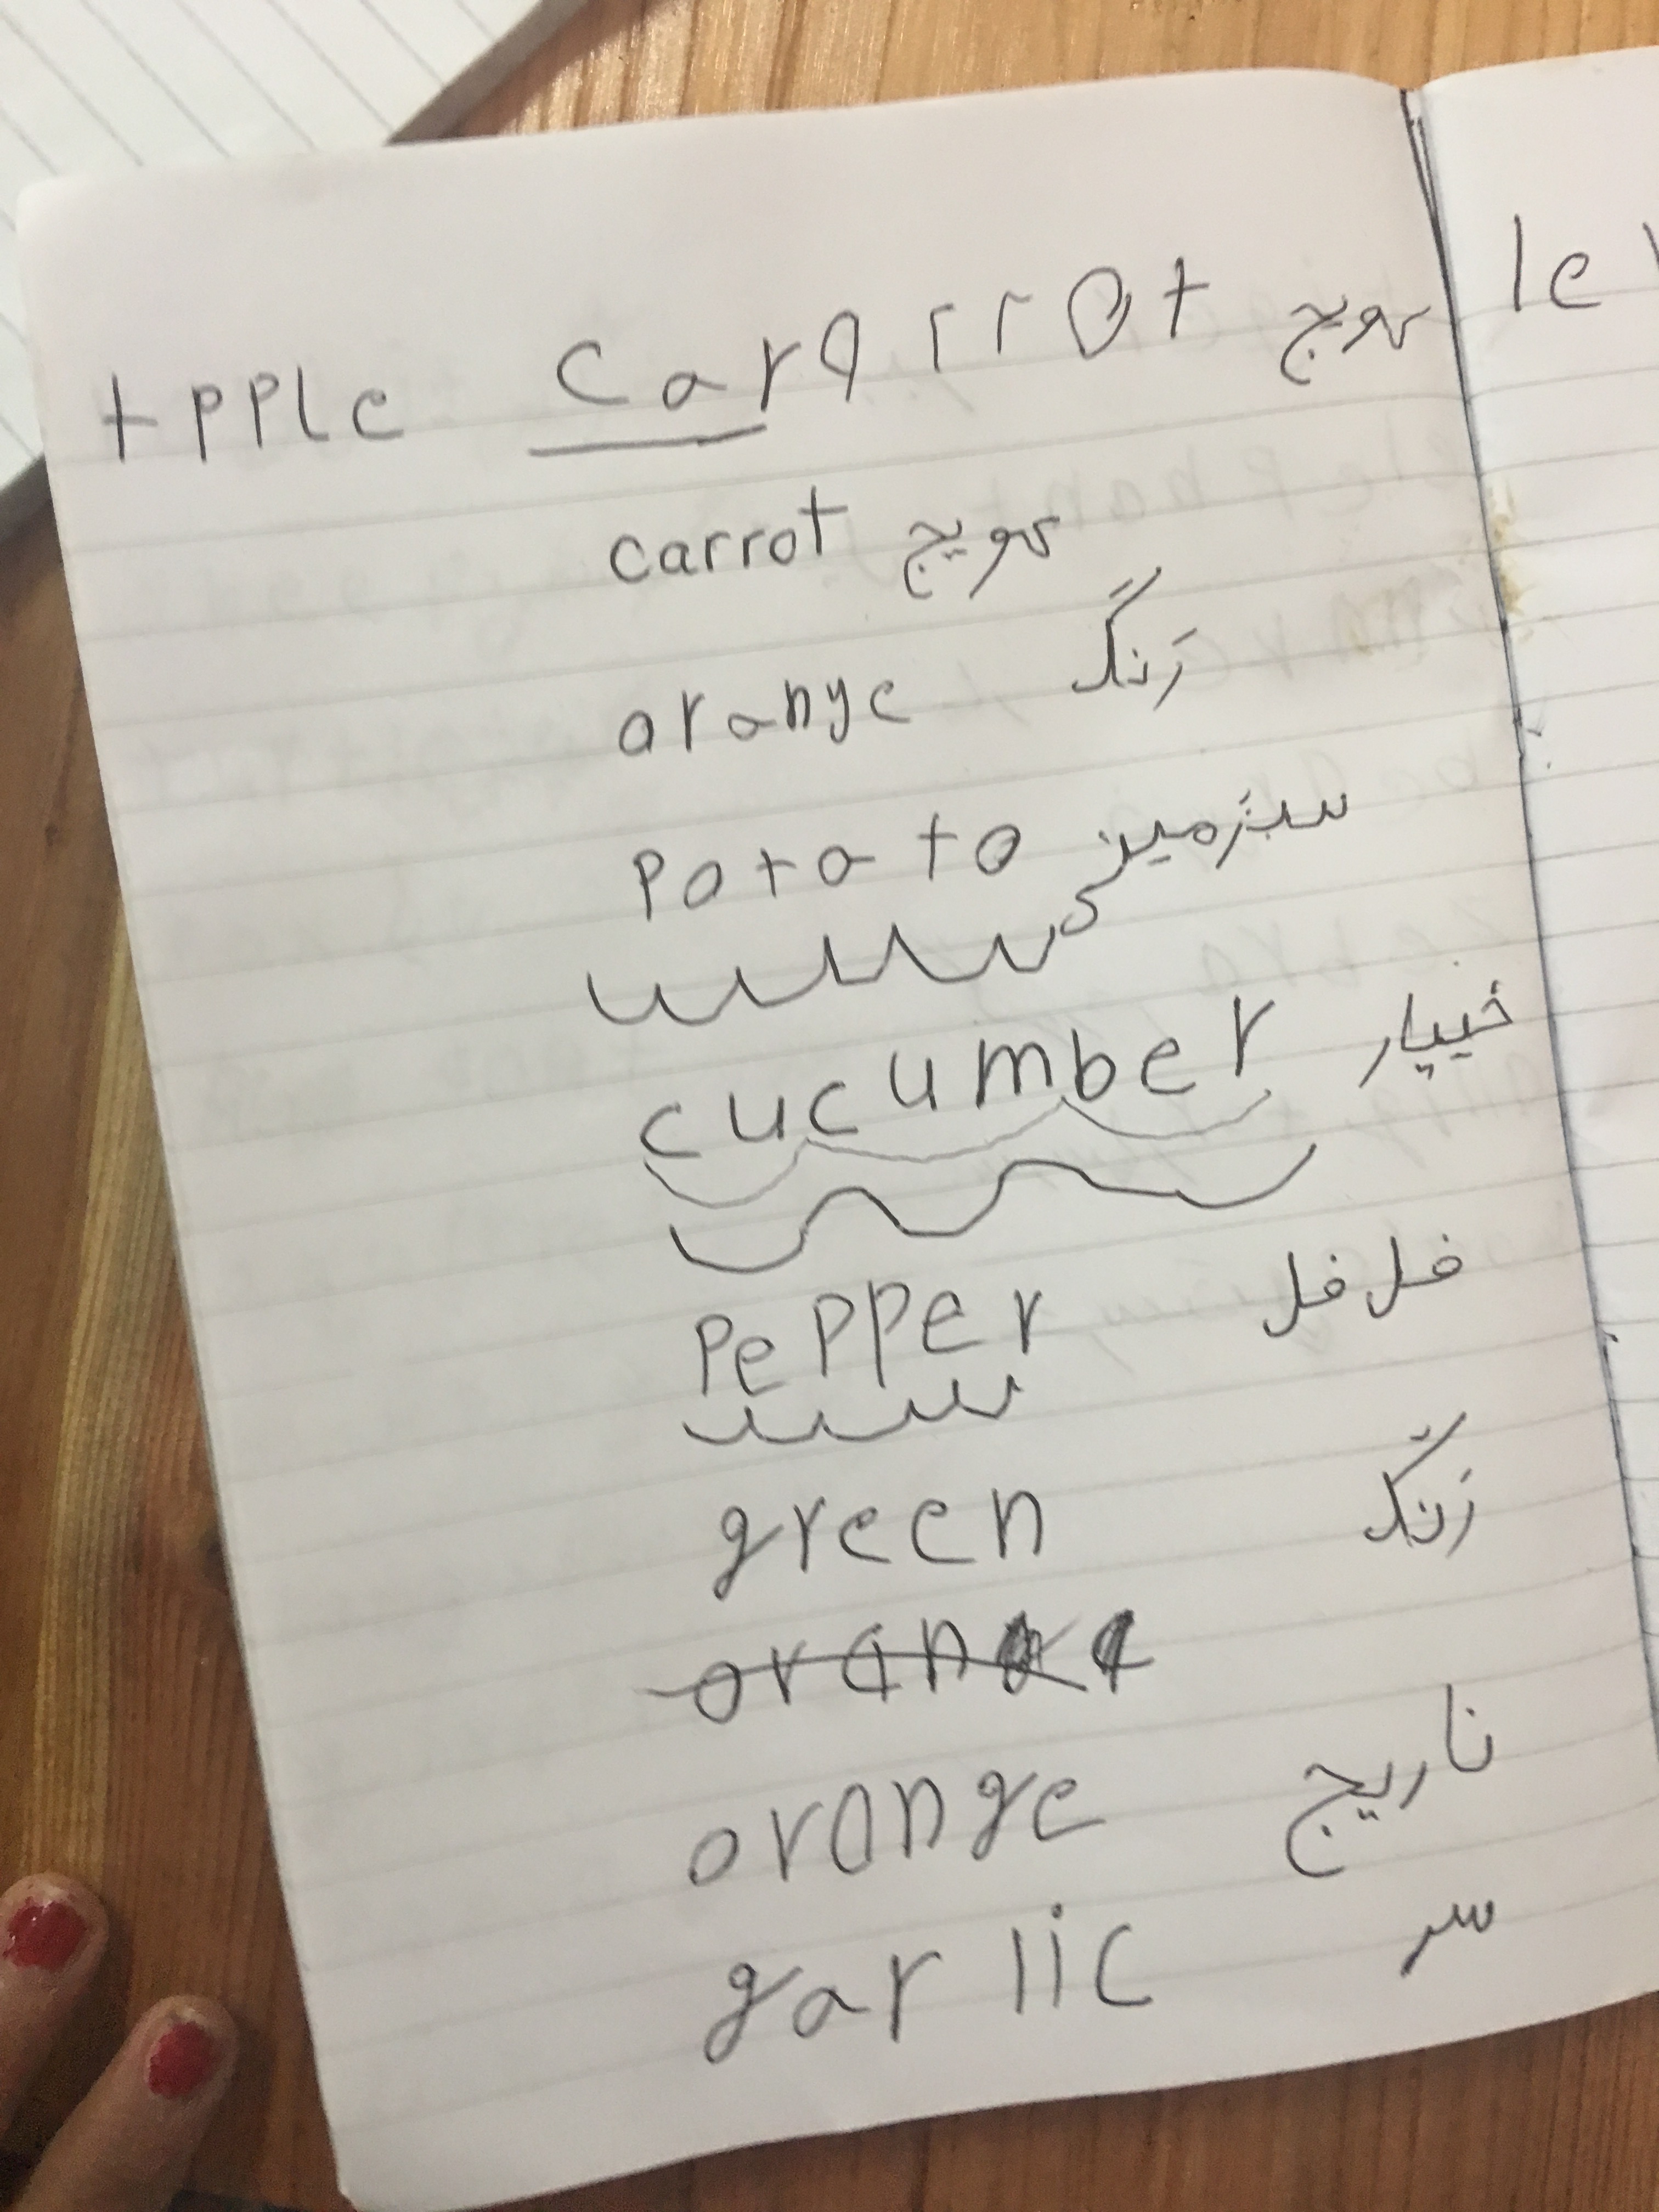 tpple Carqrrot کویج
carrot کویج
oranye رنگ
Potato سبزمینی
cucumber خییار
Pepper فلفل
green رنگ
orange ناریج
garlic سر
le